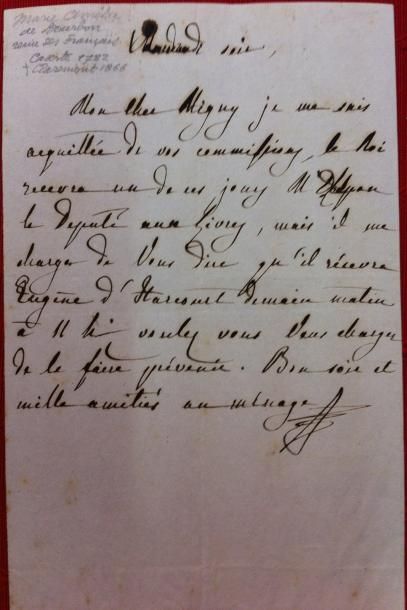 Marie Amélie
de Bourbon
reine des français
Caserte 1782
† Claremont 1866
Vendredi soir,
Mon cher Migny je me suis
acquittée de vos commissions, le Roi
recevra un de ces jours M
le Député aux Livres, mais il me
charge de Vous dire qu'il recevra
Eugène d'Harcourt Demain matin
à 11 h voulez vous Vous charger
de le faire prévenir. Bon soir et
mille amitiés au ménage